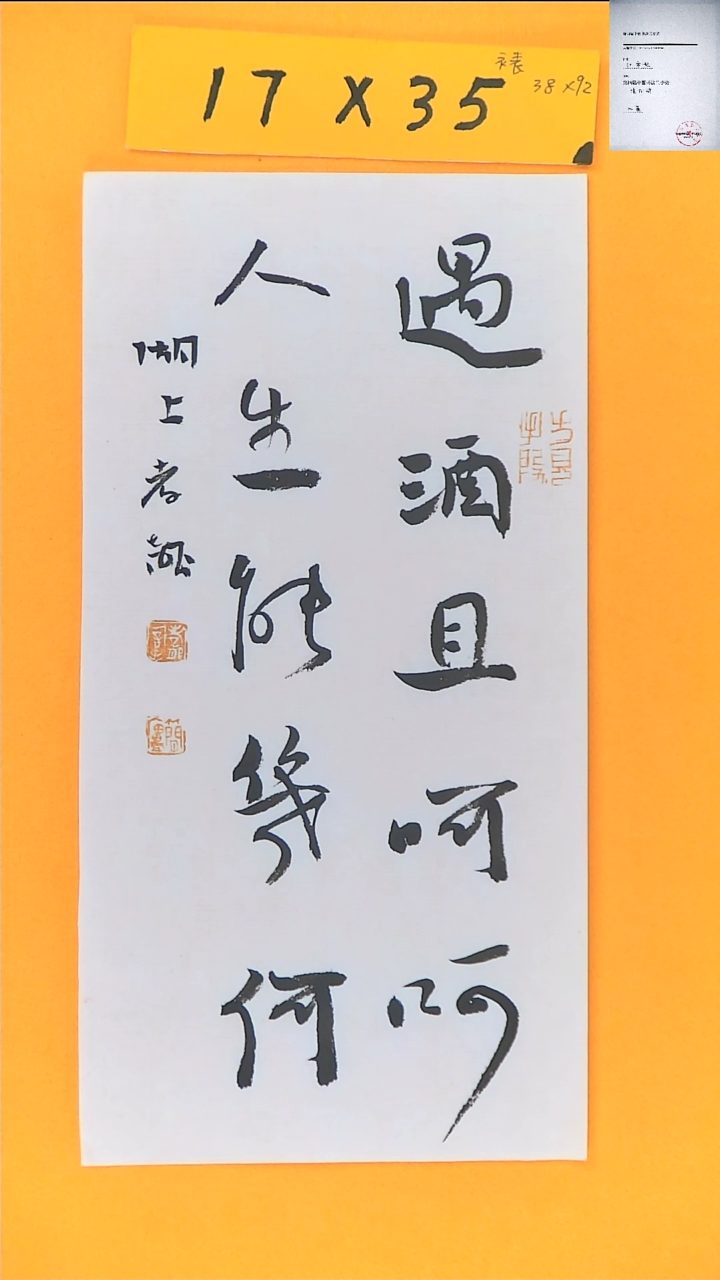 17 X 35
裱
38 x 92
遇酒且呵呵
人生能幾何
湖上老